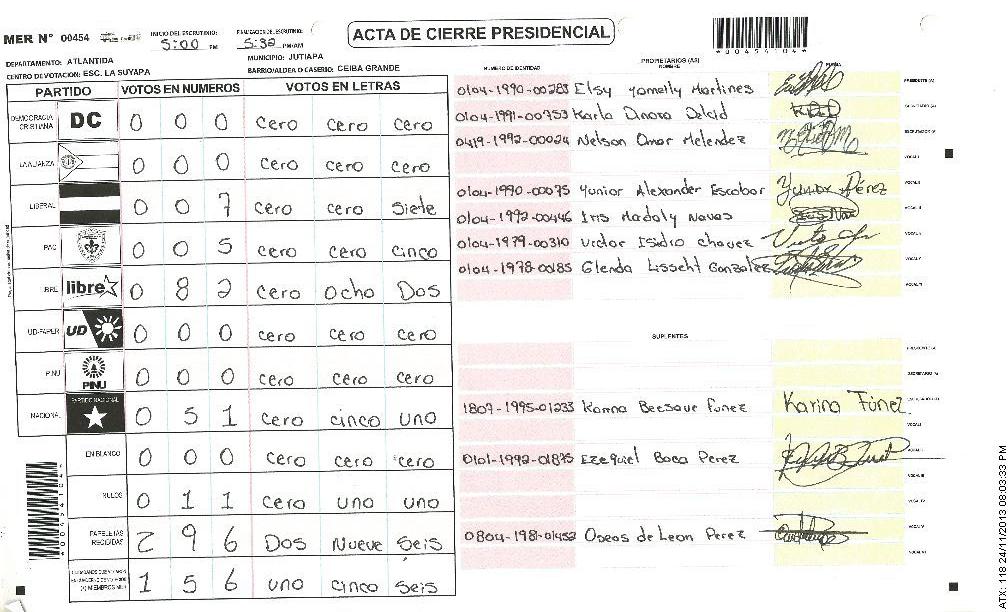 MER N° 00454
INICIO DEL ESCRUTINIO: 5:00 PM
FINALIZACION DE ESCRUTINIO: 5:32 PM/AM
ACTA DE CIERRE PRESIDENCIAL
*00454104*
DEPARTAMENTO: ATLANTIDA
MUNICIPIO: JUTIAPA
CENTRO DE VOTACION: ESC. LA SUYAPA
BARRIO/ALDEA O CASERIO: CEIBA GRANDE
PARTIDO VOTOS EN NUMEROS VOTOS EN LETRAS
DEMOCRACIA CRISTIANA DC 0 0 0 cero cero cero
LA ALIANZA 0 0 0 cero cero cero
LIBERAL 0 0 7 cero cero siete
PAC 0 0 5 cero cero cinco
LIBRE libre 0 8 2 cero ocho Dos
UD-FAPER UD 0 0 0 cero cero cero
PINU PINU 0 0 0 cero cero cero
NACIONAL PARTIDO NACIONAL 0 5 1 cero cinco uno
EN BLANCO 0 0 0 cero cero cero
NULOS 0 1 1 cero uno uno
PAPELETAS RECIBIDAS 2 9 6 Dos Nueve Seis
1 5 6 uno cinco seis
NUMERO DE IDENTIDAD PROPIETARIOS (AS) NOMBRE FIRMA
0104-1990-00283 Elsy yomelly Martines PRESIDENTE (A)
0104-1991-00753 Karla Dinora Delcid SECRETARIO (A)
0419-1992-00024 Nelson Omar Melendez ESCRUTADOR (A)
VOCAL I
0104-1990-00075 Yunior Alexander Escobar Yunior Pérez VOCAL II
0104-1992-00446 Iris Madaly Navas
0104-1979-00310 Victor Isidro chavez
0104-1978-00185 Glenda Lisseht Gonzales VOCAL V
VOCAL VI
SUPLENTES
PRESIDENTE (A)
SECRETARIO (A)
1807-1995-01233 Karina Funez Karina Fúnez
VOCAL I
0101-1992-01875 Ezequiel Boca Perez
VOCAL III
VOCAL IV
0804-198-01452 Oseos de Leon Perez VOCAL V
VOCAL VI
ATX: 118 24/11/2013 08:03:33 PM